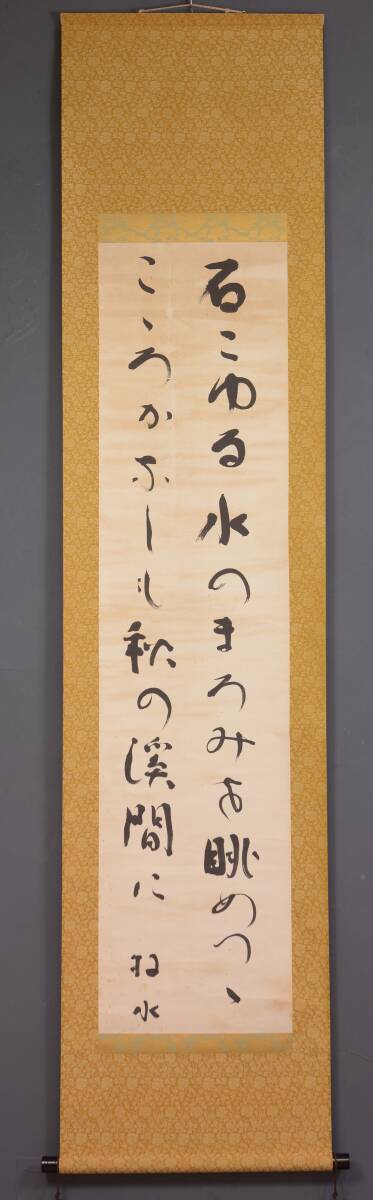 石こゆる水のまろみを眺めつゝ
こゝろかなしも秋の溪間に 牧水